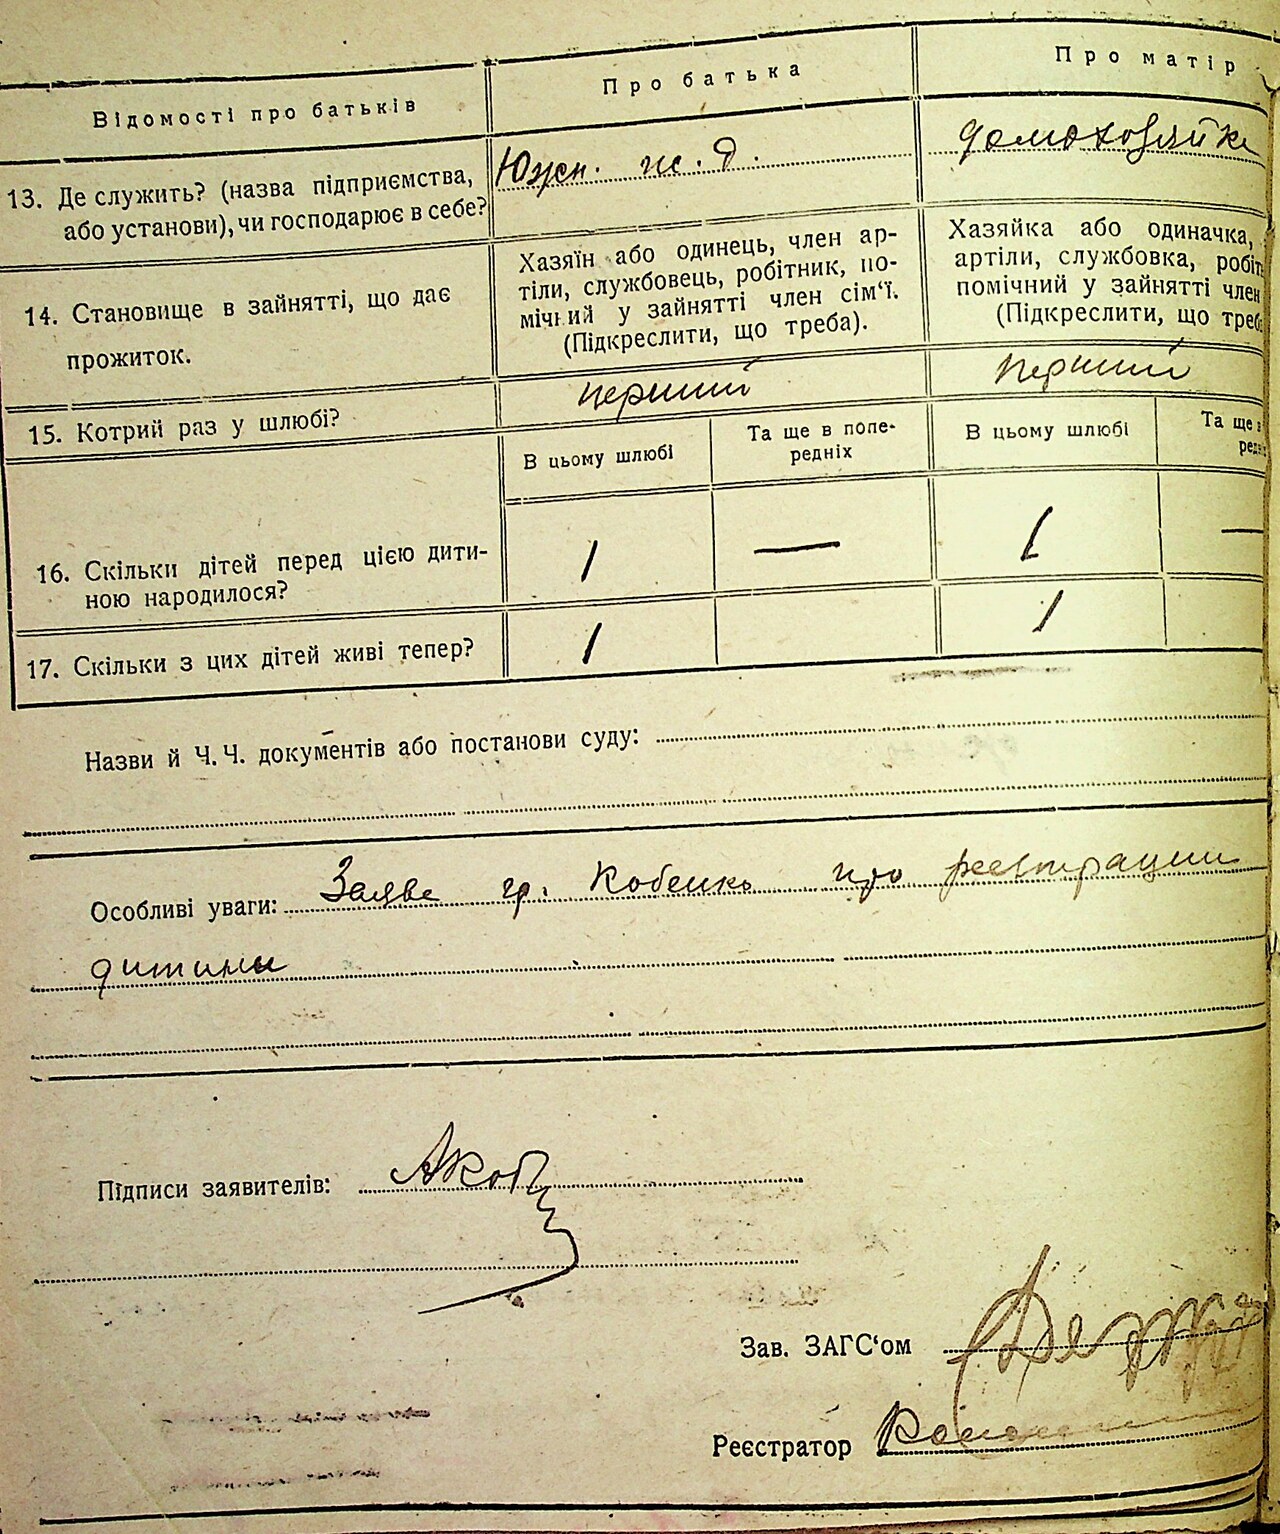 Відомості про батьків
Про батька
Про матір
13. Де служить? (назва підприємства,
або установи), чи господарює в себе?
Южн. ж. д.
домохозяйка
14. Становище в зайнятті, що дає
прожиток.
Хазяїн або одинець, член ар-
тіли, службовець, робітник, по-
мічний у зайнятті член сім‘ї.
(Підкреслити, що треба).
Хазяйка або одиначка,
артіли, службовка, робіт
помічний у зайнятті член
(Підкреслити, що треба
15. Котрий раз у шлюбі?
перший
перший
В цьому шлюбі
Та ще в попе-
редніх
В цьому шлюбі
Та ще в
редніх
16. Скільки дітей перед цією дити-
ною народилося?
1
—
1
—
17. Скільки з цих дітей живі тепер?
1
1
Назви й Ч. Ч. документів або постанови суду:
Особливі уваги: Заява гр. Кобенко про реєстрации
дитини
Підписи заявителів: АКоб
Зав. ЗАГС‘ом
Реєстратор